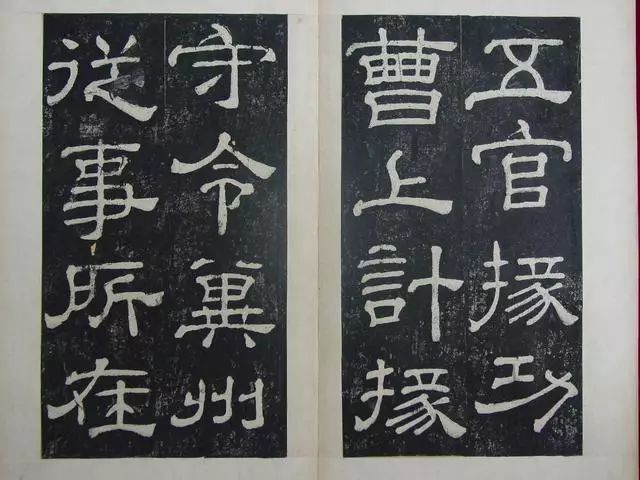 五官掾功
曹上計掾
守令冀州
從事所在